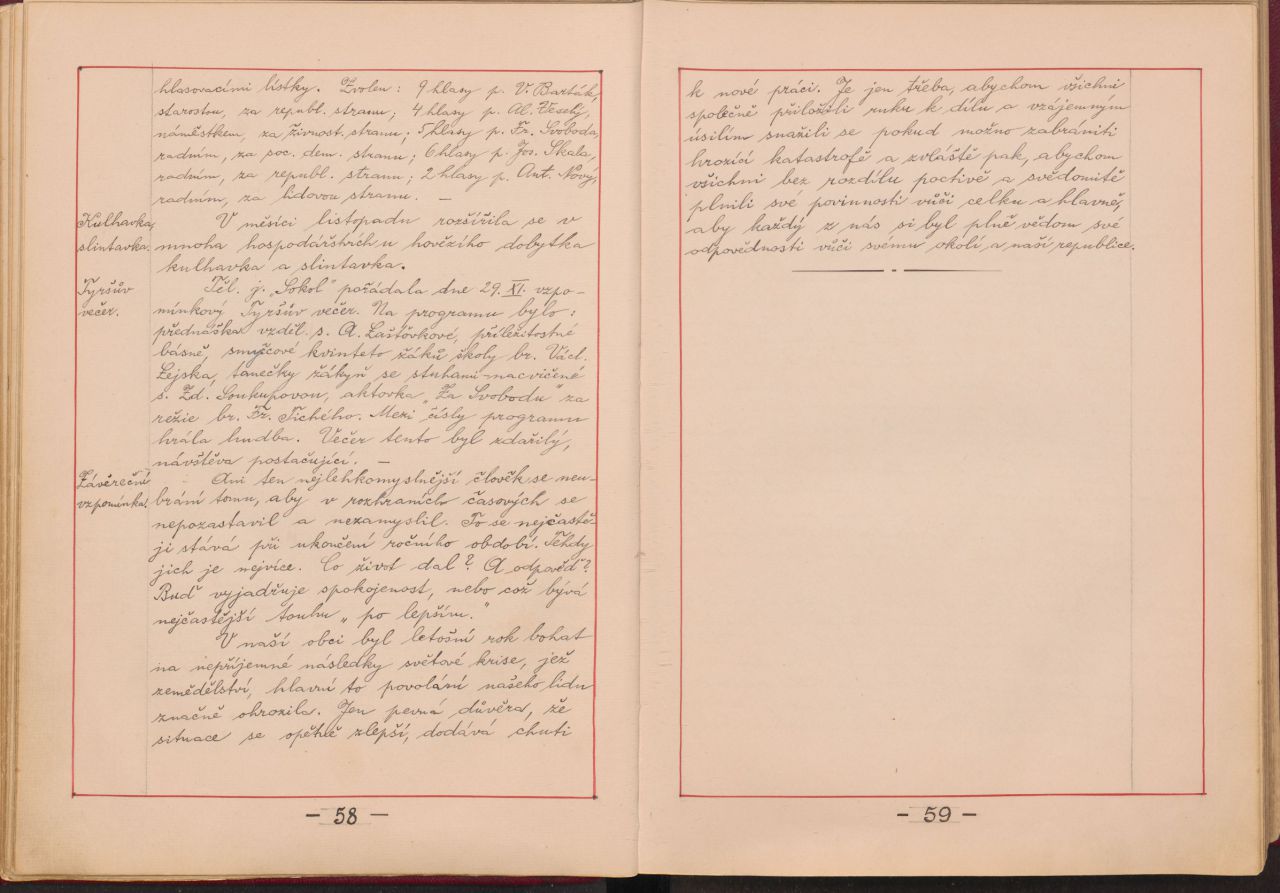 hlasovacími lístky. Zvolen: 9 hlasy p. V. Barták,
starostou, za republ. stranu; 4 hlasy p. Al. Veselý,
náměstkem, za živnost. stranu; hlasy p. Fr. Svoboda,
radním, za soc. dem. stranu; 6 hlasy p. Jos. Skala,
radním, za republ. stranu; 2 hlasy p. Ant. Nový,
radním, za lidovou stranu. —
Kulhavka,
slintavka.
V měsíci listopadu rozšířila se v
mnoha hospodářstvích u hovězího dobytka
kulhavka a slintavka.
Tyršův
večer.
Těl. j. „Sokol" pořádala dne 29. XI. vzpo-
mínkový Tyršův večer. Na programu bylo:
přednáška vzděl. s. A. Laštůvkové, příležitostné
básně, smyčcové kvinteto žáků školy br. Václ.
Lejska, tanečky žákyň se stuhami nacvičené
s. Zd. Soukupovou, aktovka „Za Svobodu" za
režie br. Fr. Tichého. Mezi čísly programu
hrála hudba. Večer tento byl zdařilý,
návštěva postačující. —
Závěrečná
vzpomínka.
Ani ten nejlehkomyslnější člověk se neu-
brání tomu, aby v rozhraních časových se
nepozastavil a nezamyslil. To se nejčastě-
ji stává při ukončení ročního období. Tehdy
jich je nejvíce. Co život dal? A odpověď?
Buď vyjadřuje spokojenost, nebo což bývá
nejčastější touhu „po lepším."
V naší obci byl letošní rok bohat
na nepříjemné následky světové krise, jež
zemědělství, hlavní to povolání našeho lidu
značně ohrozila. Jen pevná důvěra, že
situace se opětně zlepší, dodává chuti
— 58 —
k nové práci. Je jen třeba, abychom všichni
společně přiložili ruku k dílu a vzájemným
úsilím snažili se pokud možno zabrániti
hrozící katastrofě a zvláště pak, abychom
všichni bez rozdílu poctivě a svědomitě
plnili své povinnosti vůči celku a hlavně,
aby každý z nás si byl plně vědom své
odpovědnosti vůči svému okolí a naší republice.
— 59 —